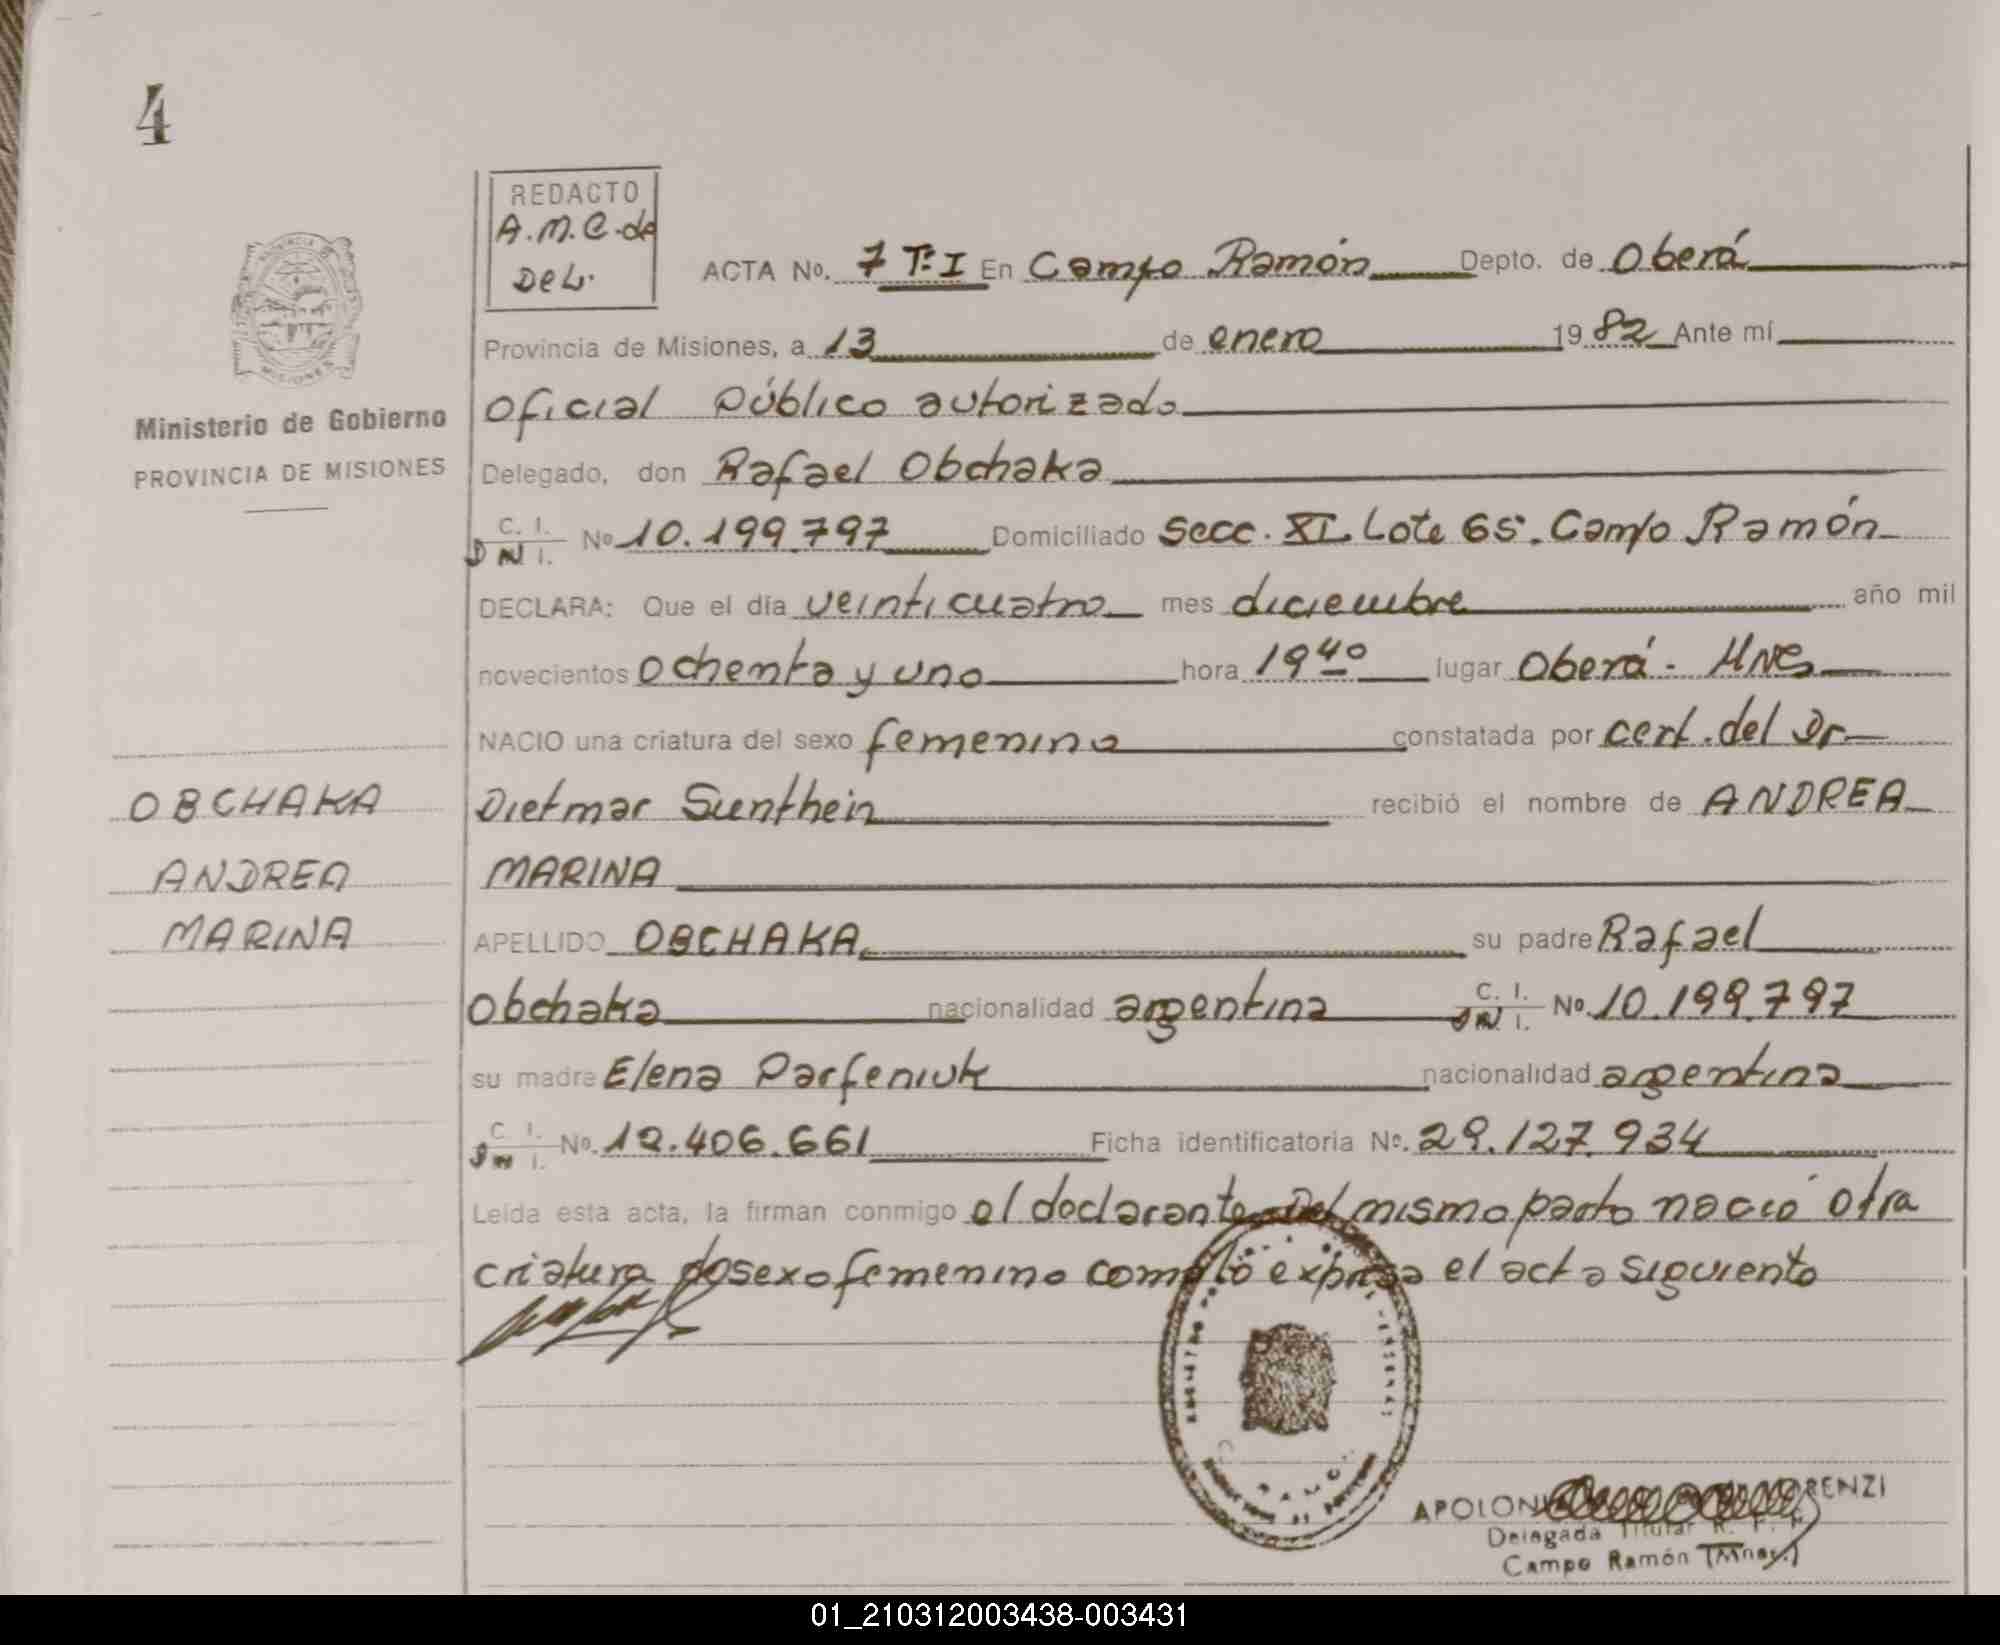 4
REDACTO
A.M.C. de
DeL.
ACTA No. 7 Tº I En Campo Ramón Depto. de Oberá
Provincia de Misiones, a 13 de enero 1982 Ante mí
Oficial Público autorizado
Ministerio de Gobierno
PROVINCIA DE MISIONES
Delegado, don Rafael Obchaka
C. I.
D N I. No 10.199.797 Domiciliado Secc. XI. Lote 65. Campo Ramón
DECLARA: Que el día veinticuatro mes diciembre año mil
novecientos ochenta y uno hora 19 40 lugar Oberá - Mnes
NACIO una criatura del sexo femenino constatada por cert. del Dr
OBCHAKA
ANDREA
MARINA
Dietmar Sunthein recibió el nombre de ANDREA
MARINA
APELLIDO OBCHAKA su padre Rafael
Obchaka nacionalidad argentina C. I. D N. I. No. 10.199.797
su madre Elena Parfeniuk nacionalidad argentina
C I. D N I. No. 12.406.661 Ficha identificatoria No. 29.127.934
Leída esta acta, la firman conmigo el declarante Del mismo parto nació otra
criatura de sexo femenino como lo expresa el acta siguiente
APOLON RENZI
Delegada Titular R. P.
Campo Ramón (Mnes.)
01_210312003438-003431